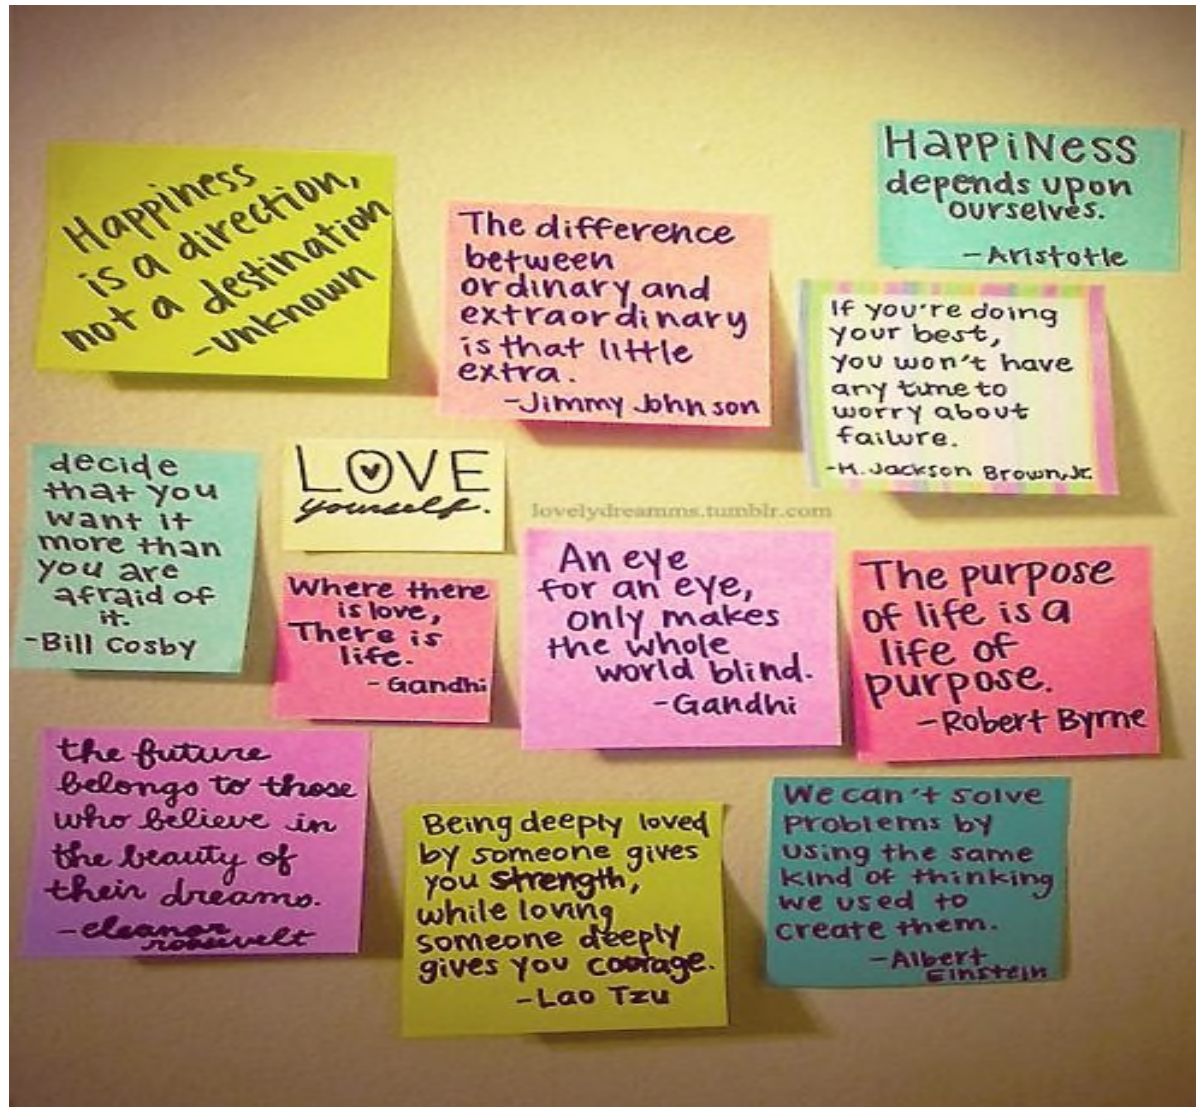 Happiness
is a direction,
not a destination
-unknown
The difference
between
ordinary and
extraordinary
is that little
extra.
-Jimmy Johnson
HAPPiNess
depends upon
ourselves.
-Aristotle
If you're doing
your best,
you won't have
any time to
worry about
failure.
-H. Jackson Brown, Jr.
decide
that you
want it
more than
you are
afraid of
it.
-Bill Cosby
LOVE
yourself.
lovelydreamms.tumblr.com
Where there
is love,
There is
life.
- Gandhi
An eye
for an eye,
only makes
the whole
world blind.
-Gandhi
The purpose
of life is a
life of
purpose.
-Robert Byrne
the future
belongs to those
who believe in
the beauty of
their dreams.
-eleanor
roosevelt
Being deeply loved
by someone gives
you strength,
while loving
someone deeply
gives you courage.
-Lao Tzu
We can't solve
problems by
using the same
kind of thinking
we used to
create them.
-Albert
Einstein